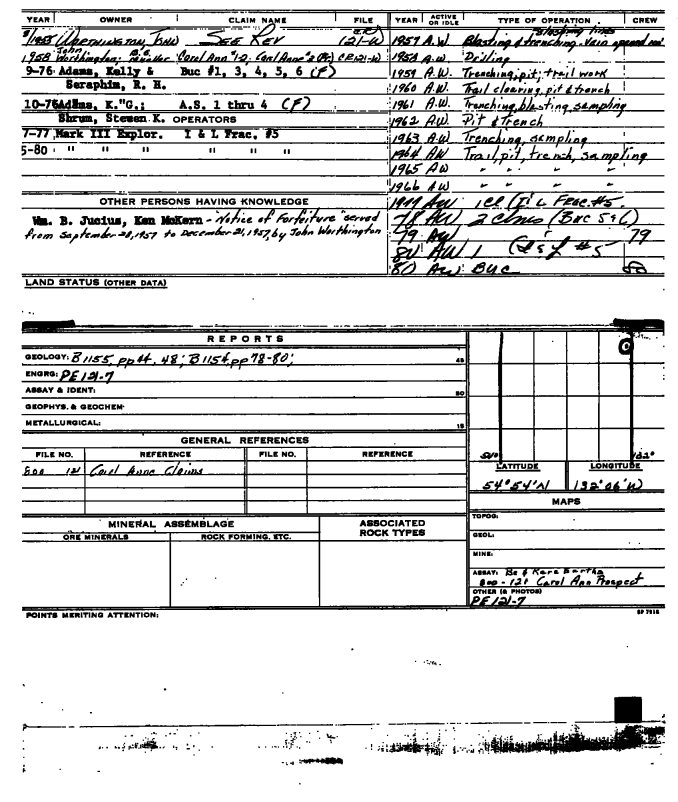 YEAR OWNER CLAIM NAME FILE
1955 Worthington, John SEE REV (121-W)
1958 Worthington, John; Carol Ann #1-2; Carol Anne #2 CR121-W
9-76 Adams, Kelly & Buc #1, 3, 4, 5, 6 (F)
Seraphim, R. H.
10-76 Adams, K."G.; A.S. 1 thru 4 (F)
Shrum, Stemen K. OPERATORS
7-77 Mark III Explor. I & L Frac. #5
5-80 " " " "
OTHER PERSONS HAVING KNOWLEDGE
Wm. B. Jucius, Ken McKern - "Notice of Forfeiture" served
from September 28, 1957 to December 21, 1957, by John Worthington
YEAR ACTIVE OR IDLE TYPE OF OPERATION CREW
1957 A.W. Blasting & trenching. Vein
1958 A.W. Drilling
1959 A.W. Trenching, pit; trail work
1960 A.W. Trail clearing, pit & trench
1961 A.W. Trenching, blasting, sampling
1962 A.W. Pit & trench
1963 A.W. Trenching, sampling
1964 AW Trail, pit, trench, sampling
1965 AW " " "
1966 AW " " "
AW I & L Frac. #5
78 AW 2 clms (Buc 5 & 6)
79 AW 79
80 AW 1 #5
80 AW Buc
LAND STATUS (OTHER DATA)
REPORTS
GEOLOGY: B1155, pp 44, 48; B1154, pp 78-80; 45
ENGRG: PE 121-7
ASSAY & IDENT: 80
GEOPHYS. & GEOCHEM-
METALLURGICAL: 15
GENERAL REFERENCES
FILE NO. REFERENCE FILE NO. REFERENCE
800 121 Carol Anne Claims
54° 132°
LATITUDE LONGITUDE
54° 54' N 132° 06' W
MAPS
TOPOG:
GEOL:
MINE:
ASSAY: Be & Rare Earths
800-121 Carol Ann Prospect
OTHER (& PHOTOS)
PE 121-7
MINERAL ASSEMBLAGE ASSOCIATED ROCK TYPES
ORE MINERALS ROCK FORMING, ETC.
POINTS MERITING ATTENTION: